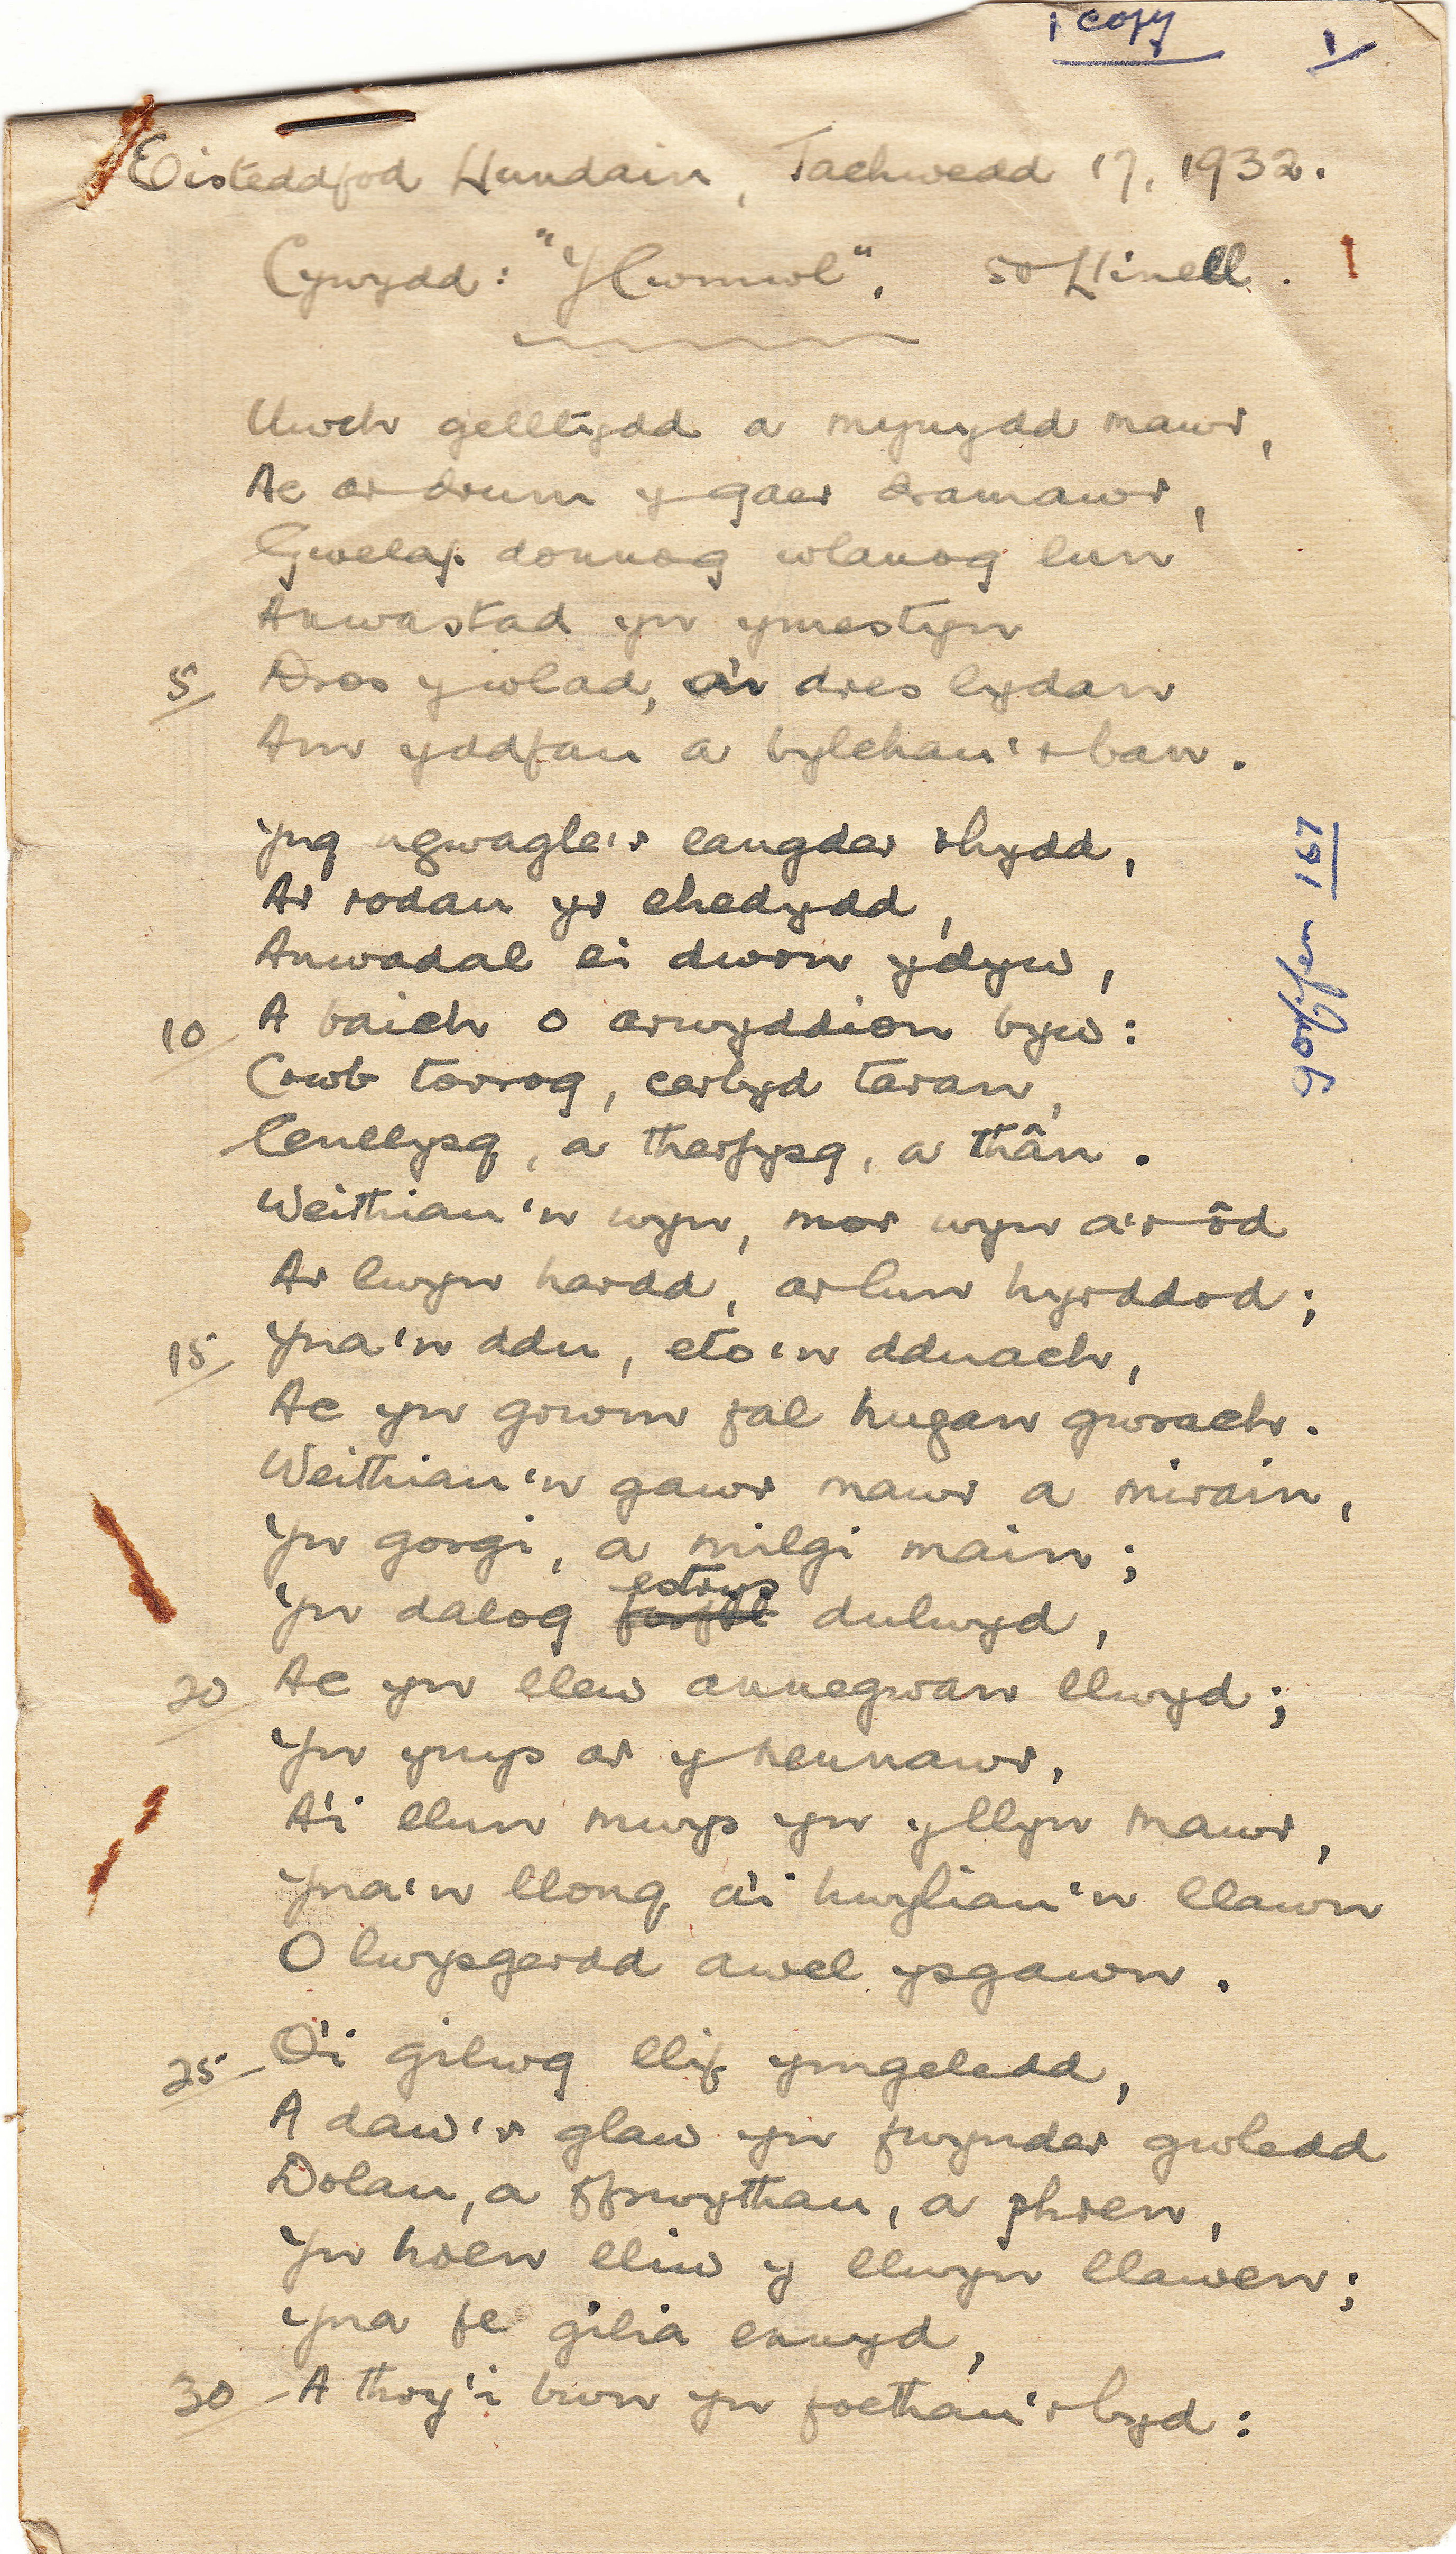 1 copy
1
Eisteddfod Llundain, Tachwedd 17, 1932.
Cywydd: "Y Cwmwl", 50 Llinell.
Uwch gelltydd a mynydd mawr,
Ac ar drum y gaer dramawr,
Gwelaf donnog wlanog lun
Anwastad yn ymestyn
5 Dros y wlad, a'r dres lydan
Am yddfau a bylchau'r ban.
Yng ngwagle'r eangder rhydd,
Ar rodau yr ehedydd,
Anwadal ei dwon ydyw,
10 A baich o arwyddion byw:
Crwb torrog, cerbyd taran,
Cenllysg, a therfysg, a thân.
Weithiau'n wyn, mor wyn a'r ôd
Ar lwyn hardd, ar lun hyrddod;
15 Yna'n ddu, eto'n dduach,
Ac yn grwm fal hugan gwrach.
Weithiau'n gawr mawr a mirain,
Yn gorgi, a milgi main;
estrys
Yn dalog dulwyd,
20 Ac yn llew annegwan llwyd;
Yn ynys ar y nennawr,
A'i llun mwys yn y llyn mawr,
Yna'n llong a'i hwyliau'n llawn
O lwysgerdd awel ysgawn.
25 O'i gilwg llif ymgeledd,
A daw'r glaw yn fwynder gwledd
Dolau, a ffrwythau, a phren,
Yn hoen lliw y llwyn llawen;
Yna fe gilia ennyd,
30 A thry'i bwn yn foethau'r byd:
gorffen 167